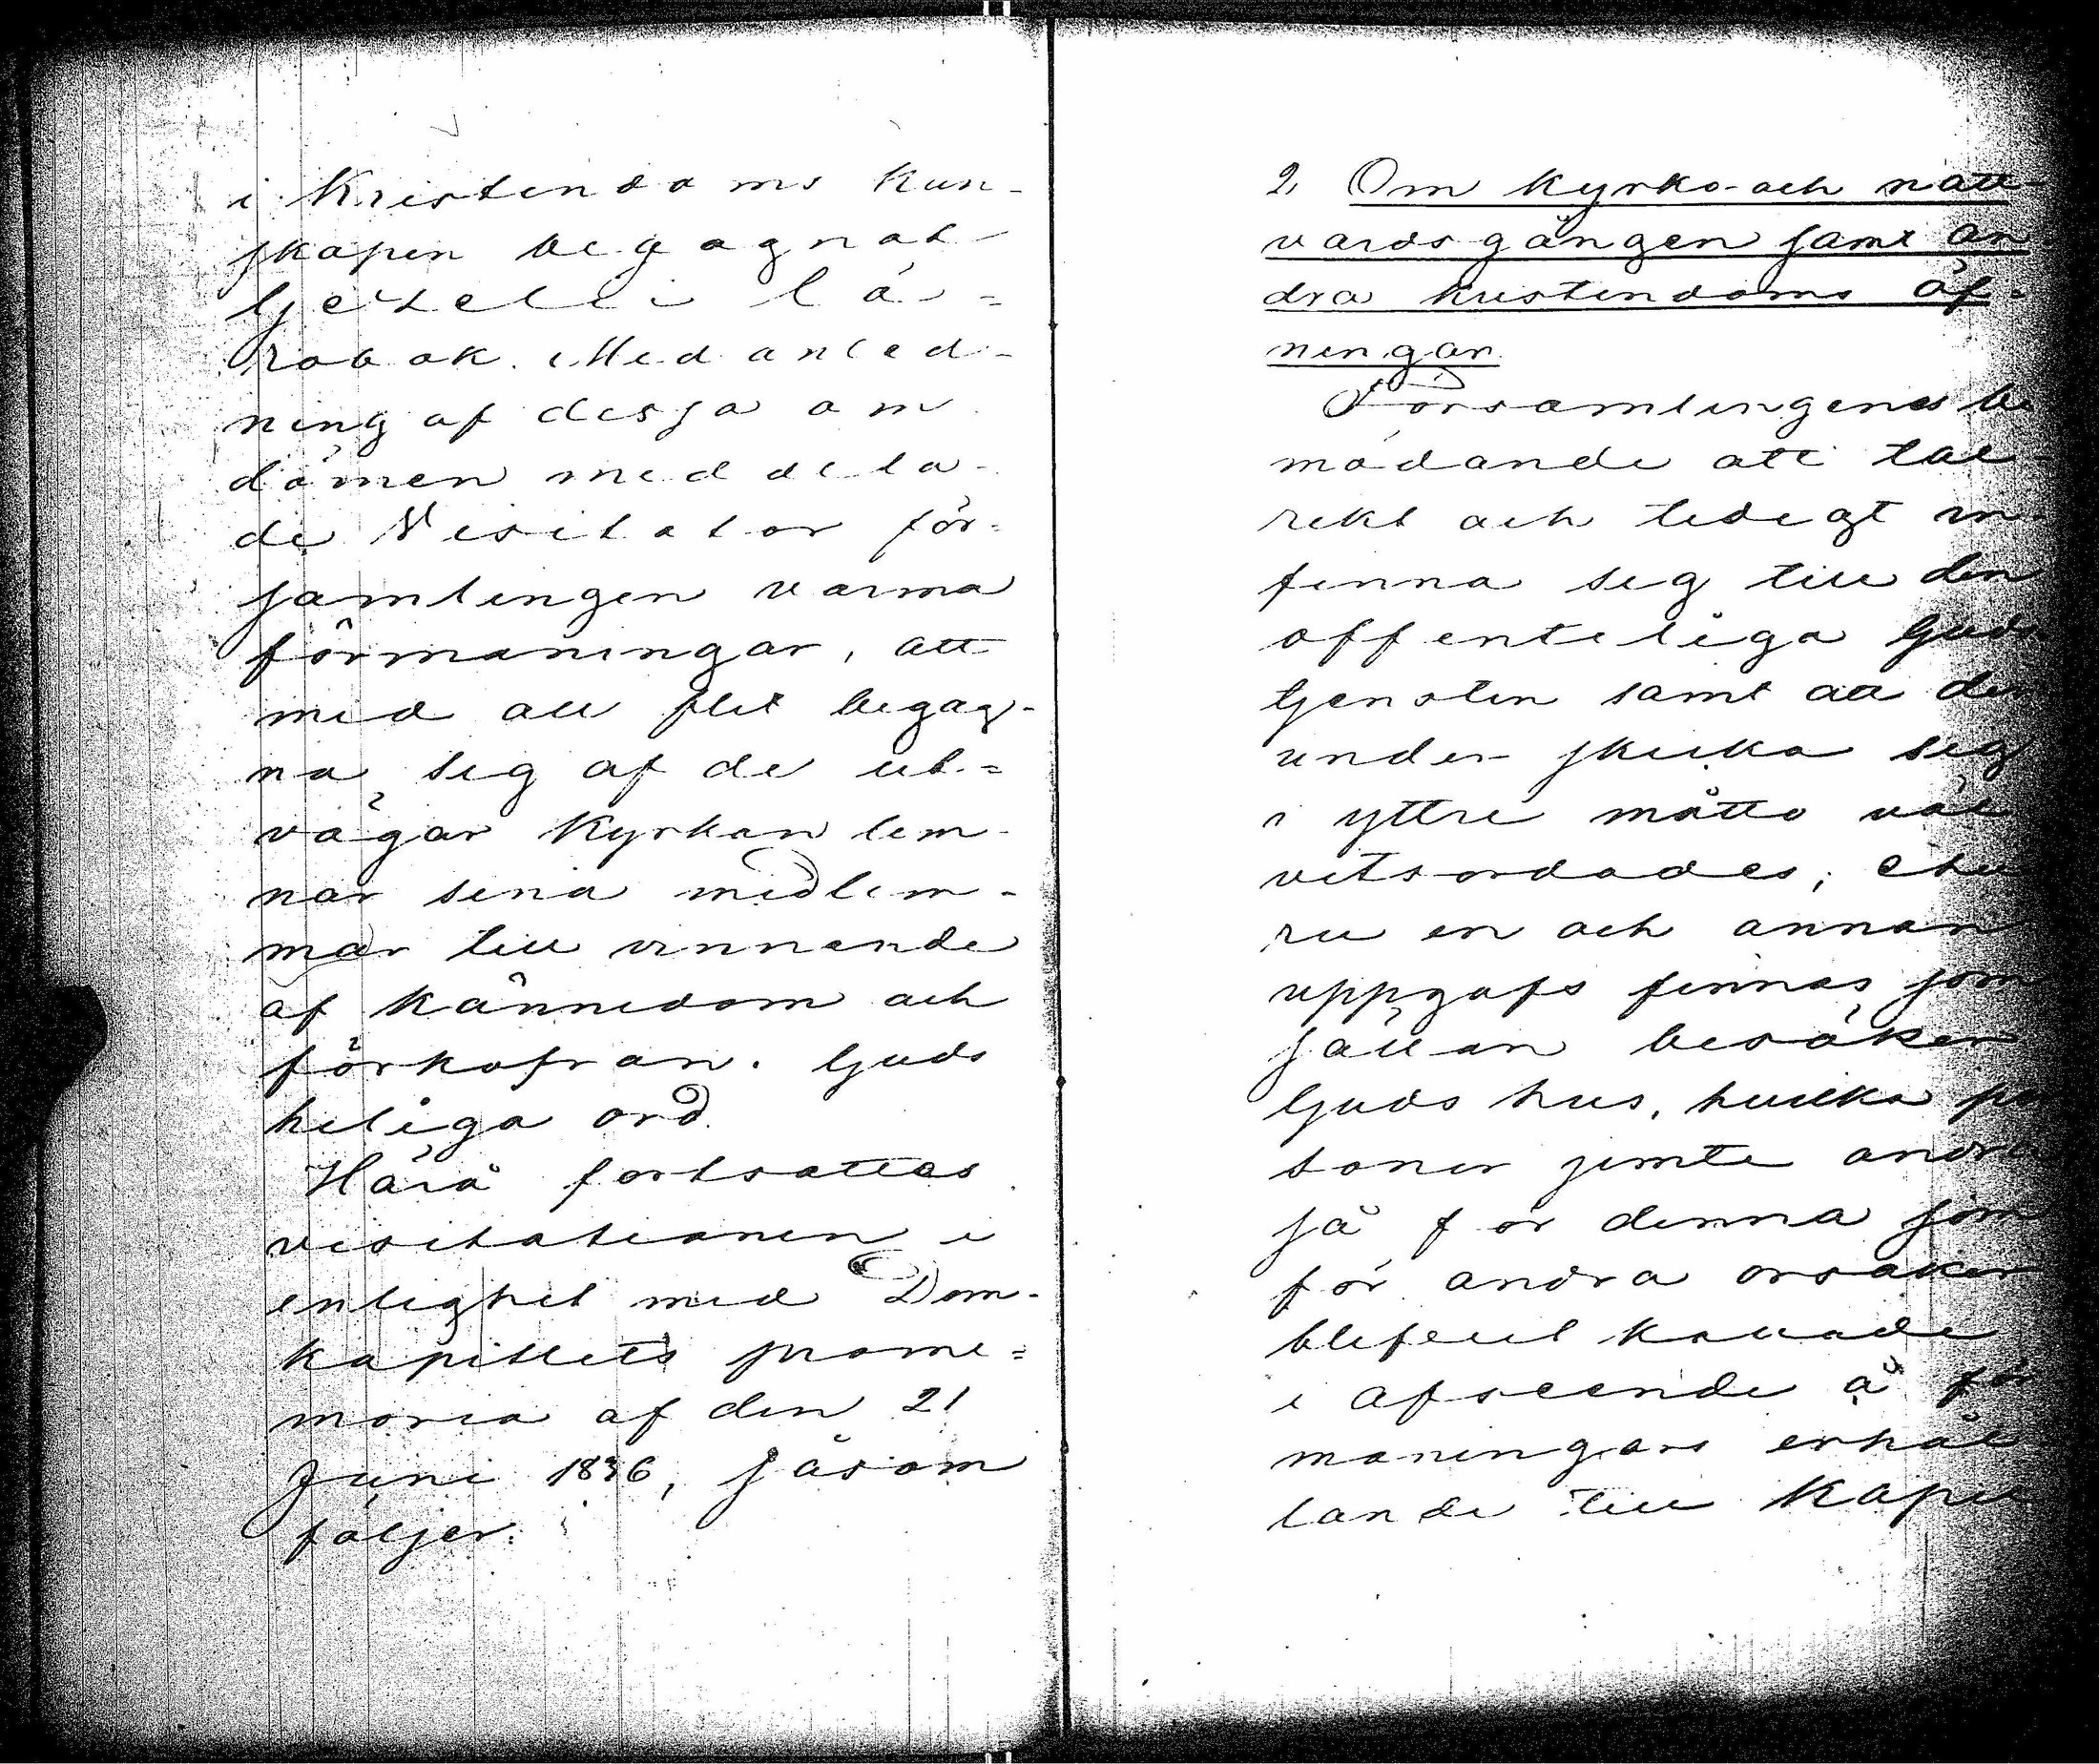 i Kristendoms kun-
skapen begagnat
Getzelii lä-
robok. Med anled-
ning af dessa om
dömen meddela-
de Visitator för-
samlingen varma
förmaningar, att
med all flit begag-
na sig af de ut-
vägar Kyrkan lem-
nar sina medlem-
mar till vinnande
af kännedom och
förkofran i Guds
heliga ord.
Härå fortsattes
visitationen i
enlighet med Dom-
kapitlets prome-
moria af den 21
Juni 1836, såsom
följer:
2. Om kyrko- och natt-
vardsgången samt an-
dra kristendoms öf-
ningar.
Församlingenes be
mödande att tal-
rikt och tidigt in-
finna sig till den
offenteliga Guds
tjensten samt att der
under skicka sig
i yttre måtto väl
vitsordades; ehu
ru en och annan
uppgafs finnas som
sällan besöker
Guds hus, hvilka per
soner jemte andra
så för denna som
för andra orsaker
blefvit kallade
i afseende å för
maningars erhål
lande till Kapit